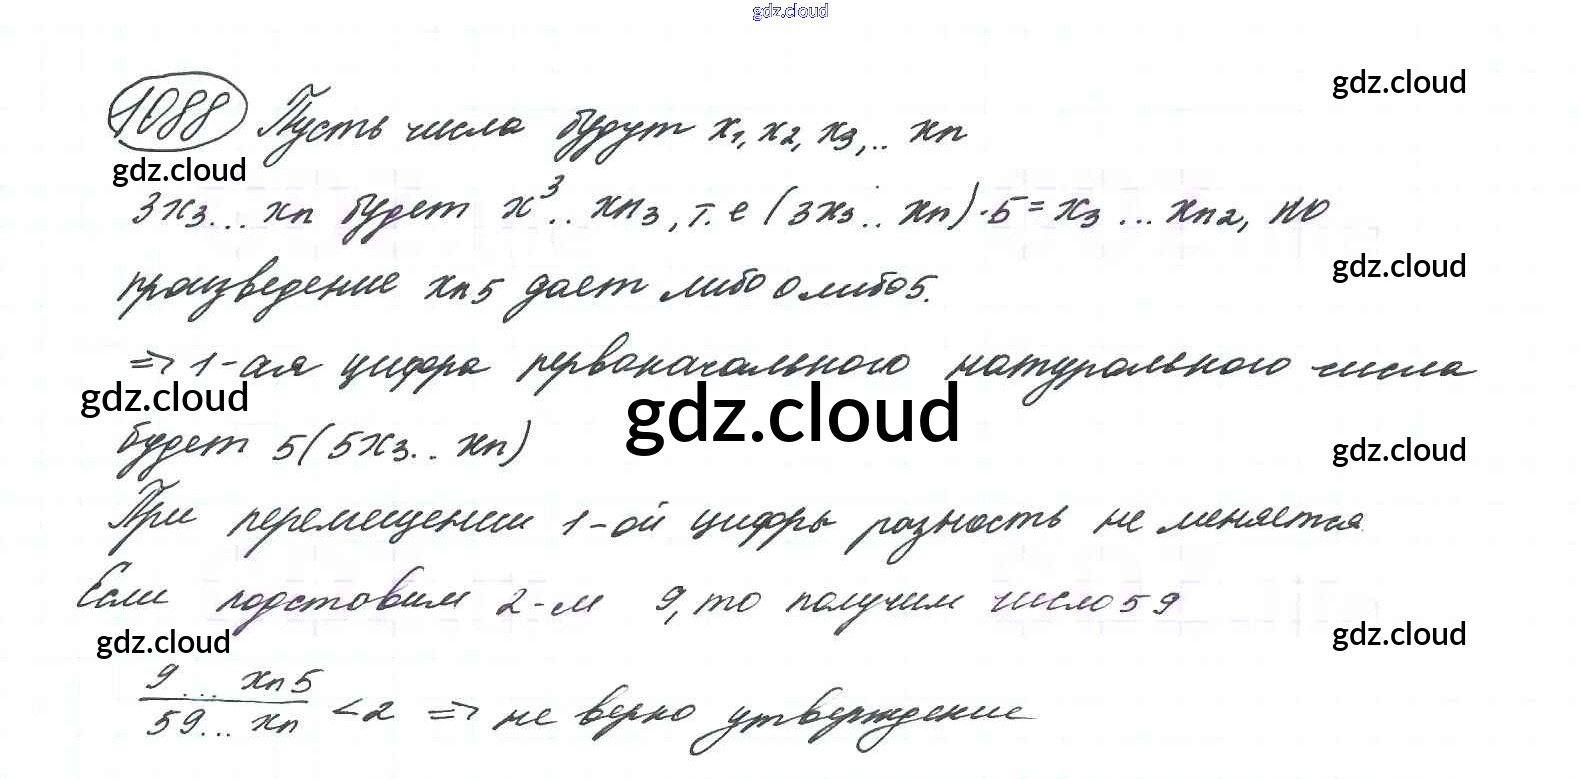 gdz.cloud
gdz.cloud
1088 Пусть числа будут x₁, x₂, x₃,.. xn
gdz.cloud
3x₃... xn будет x³.. xn₃, т.е (3x₃.. xn)·5=x₃ ... xn₂, но
gdz.cloud
произведение xn5 дает либо 0 либо 5.
=> 1-ая цифра первоначального натурального числа
gdz.cloud
gdz.cloud
будет 5(5x₃.. xn)
gdz.cloud
При перемещении 1-ой цифры разность не меняется
Если подставим 2-м 9, то получим число 59
gdz.cloud
gdz.cloud
9... xn5
59... xn <2 => не верно утверждение